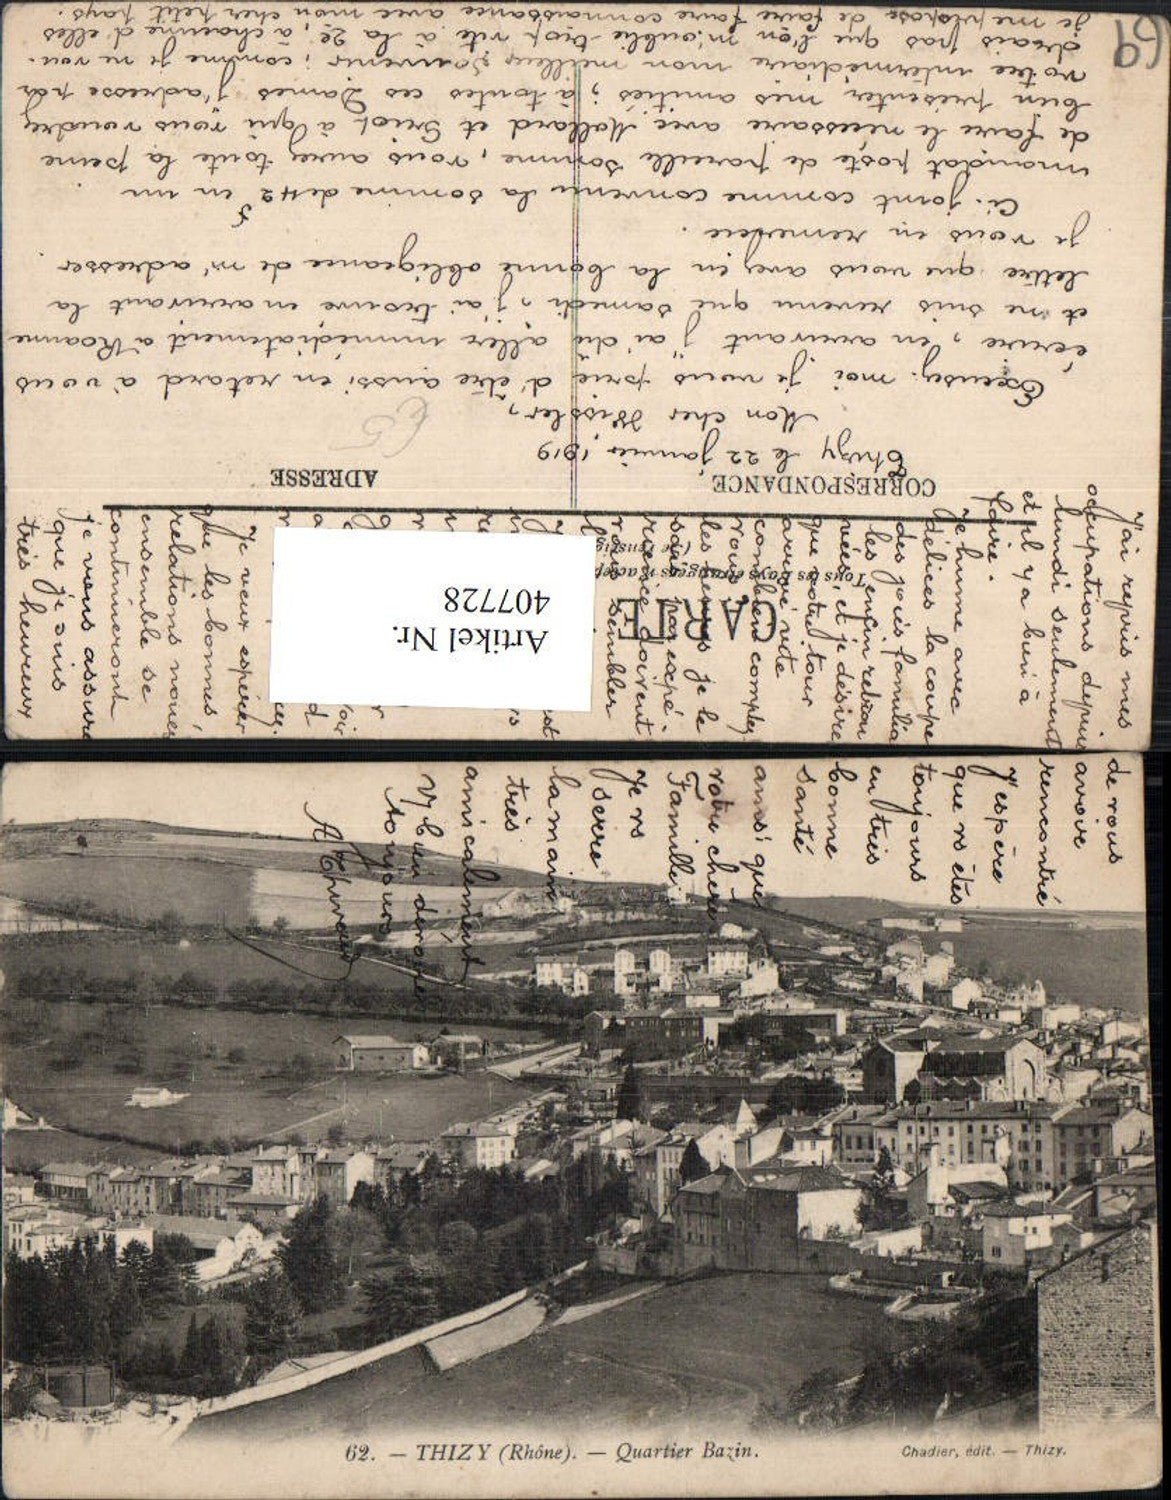 69
CARTE
Tous les Pays étrangers n'accep
Artikel Nr.
407728
CORRESPONDANCE
ADRESSE
Thizy le 22 janvier 1919
Mon cher Wissler,
Excusez moi je vous prie d'être aussi en retard à vous
écrire, en arrivant j'ai dû aller immédiatement à Roanne
et ne suis revenu que samedi, j'ai trouvé en arrivant la
lettre que vous avez eu la bonne obligeance de m'adresser
je vous en remercie.
Ci-joint comme convenu la somme de 42 f en un
mandat poste de pareille somme, vous aurez toute la peine
de faire le nécessaire avec Mallard et à qui vous voudrez
bien présenter mes amitiés; à toutes ces Dames j'adresse par
votre intermédiaire mon meilleur souvenir; comme je ne vou-
drais pas que l'on m'oublie trop vite à la 2e, à chacune d'elles
je me propose de faire faire connaissance avec mon cher petit pays.
J'ai repris mes
occupations depuis
lundi seulement
et il y a bien à
faire.
Je hume avec
délices la coupe
des joies familia
les enfin retrou
vées, et je désire
que votre tour
arrive vite
combien comptez
vous
les jours je le
sais par expé-
rience doivent
vous sembler
Je veux espérer
que les bonnes
relations nouées
ensemble se
continueront
je vous assure
que je suis
très heureux
de vous
avoir
rencontré
J'espère
que vs êtes
toujours
en très
bonne
santé
ainsi que
votre chère
Famille
Je vs
serre
la main
très
amicalement
toujours
62. — THIZY (Rhône). — Quartier Bazin.
Chadier, édit. — Thizy.